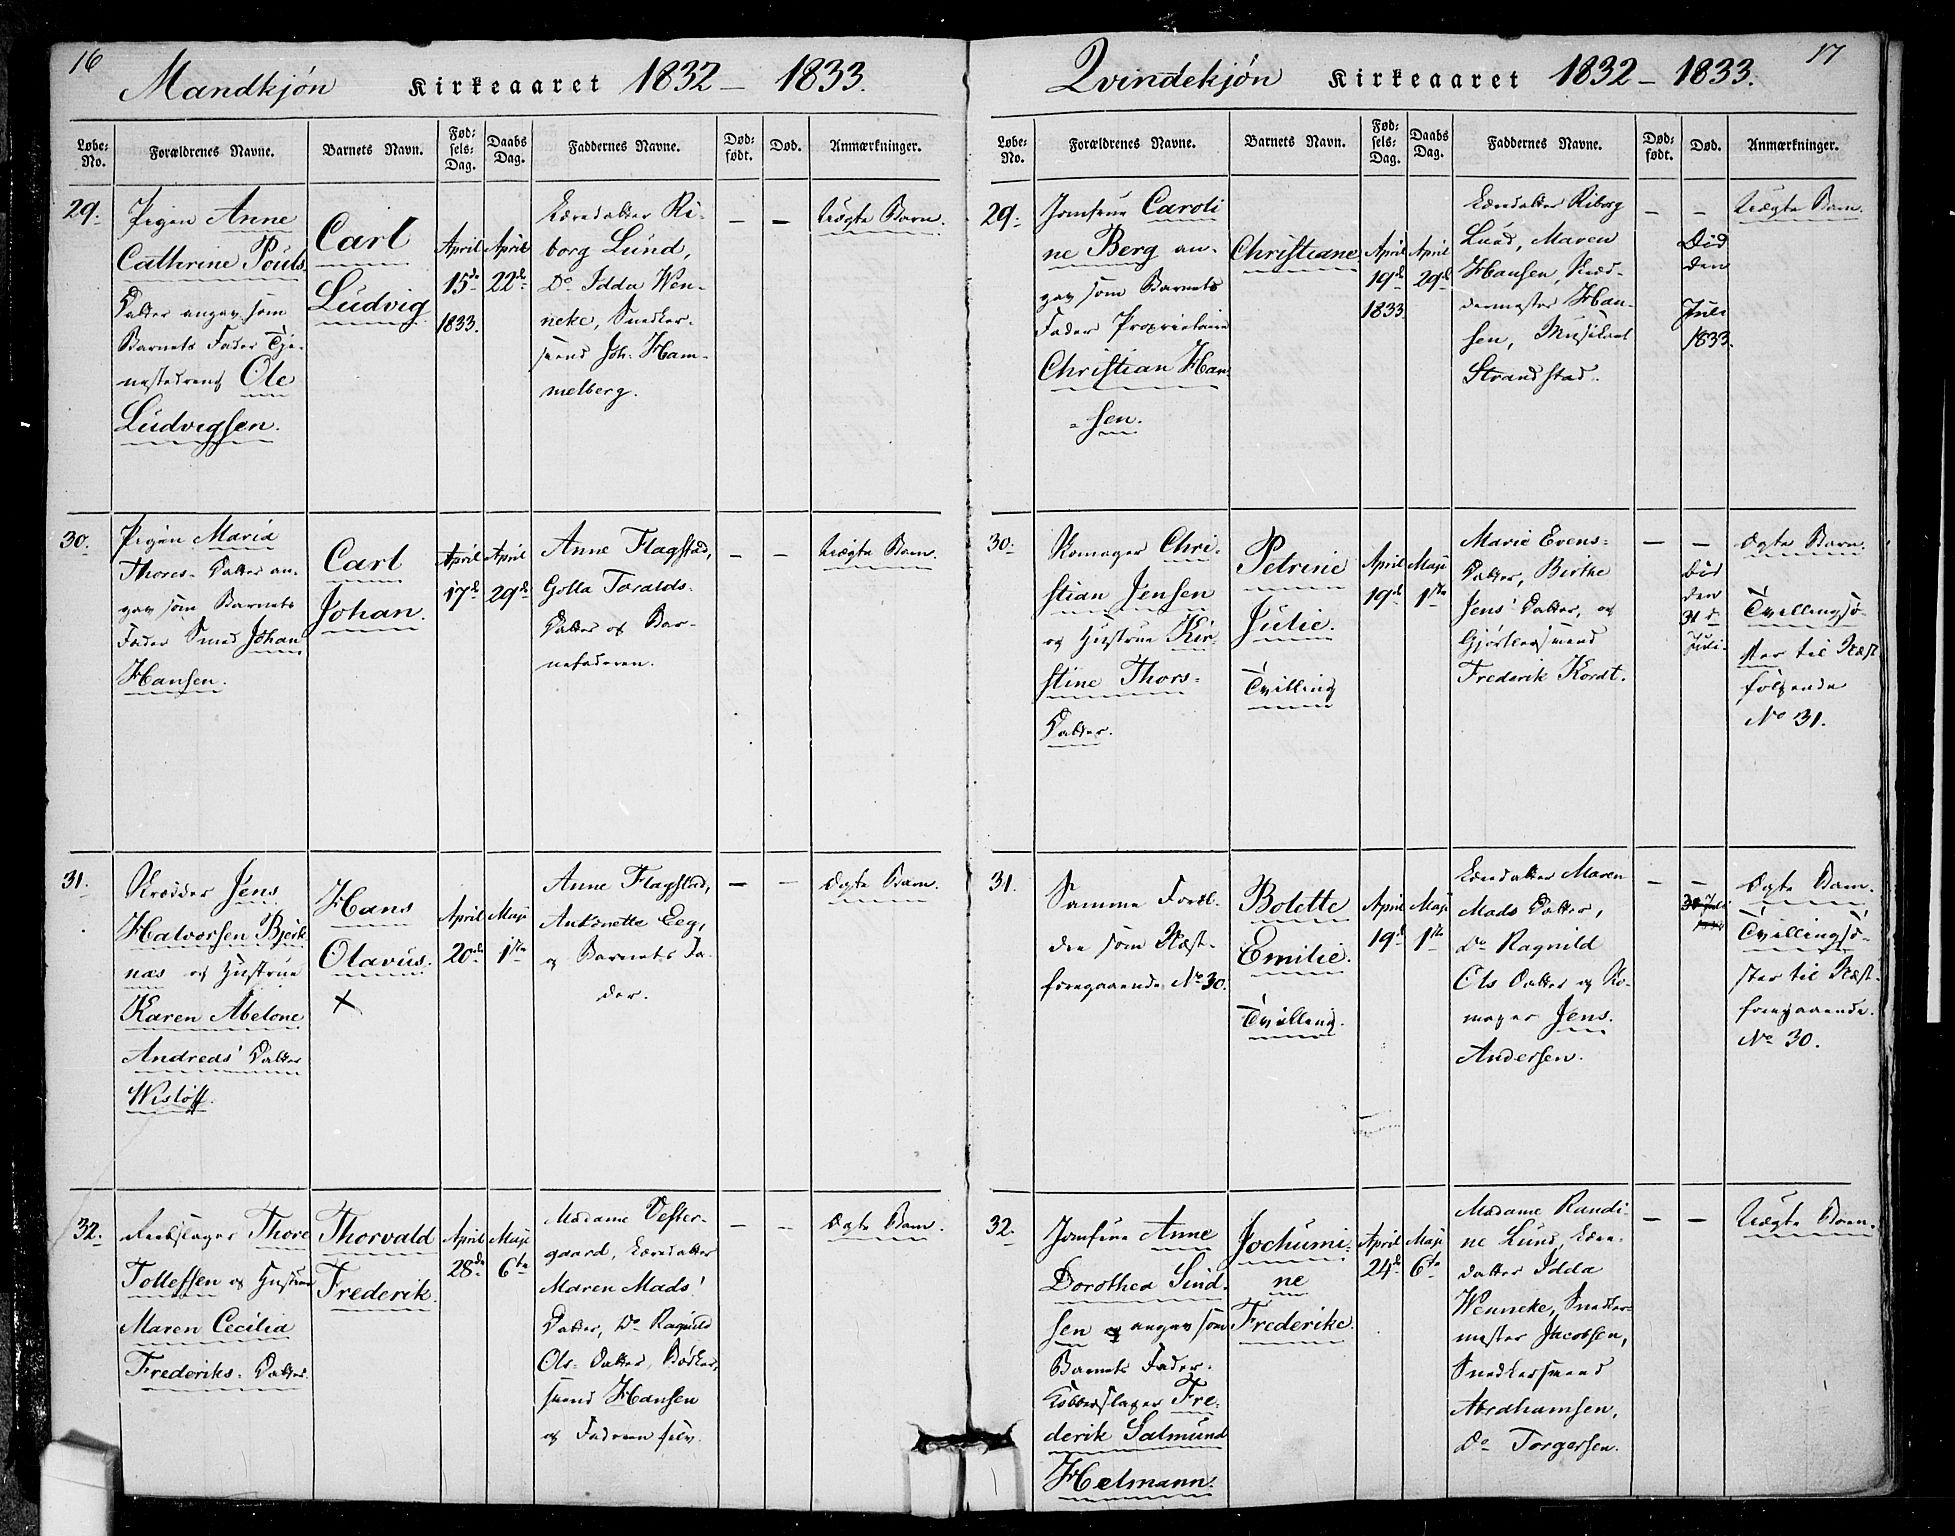 16
Mandkjøn Kirkeaaret 1832 – 1833.
Løbe-No. Forældrenes Navne. Barnets Navn. Fødsels-Dag. Daabs Dag. Faddernes Navne. Død-født. Død. Anmærkninger.
29.
Pigen Anne
Cathrine Pouls
Datter angav som
Barnets Fader Tje-
nestedreng Ole
Ludvigsen.
Carl
Ludvig
April
15de
1833.
April
22de
Eeredatter Ri-
borg Lund,
Do Idda Wen-
neke, Snedker-
svend Joh. Ham-
melberg.
– –
Uægte Barn.
30.
Pigen Maria
Thores-Datter an-
gav som Barnets
Fader Smed Johan
Hansen.
Carl
Johan.
April
17de
April
29de
Anne Flagstad,
Golla Taralds-
Datter og Bar-
nefaderen.
– –
Uægte Barn.
31.
Skrædder Jens
Halvorsen Bjerk
næs og Hustrue
Karen Abelone
Andreas' Datter
Wisløff.
Hans
Olavus.
×
April
20de
Maji
1ste
Anne Flagstad,
Antonette Eeg,
og Barnets Fa-
der.
– –
Ægte Barn.
32.
Rebslager Thore
Tollefsen og Hustrue
Maren Cecilia
Frederiks-Datter.
Thorvald
Frederik.
April
28de
Maji
6te
Madame Vester-
gaard, Eeredatter
Maren Mads'
Datter, Do Ragnild
Ols-Datter, Bødker
svend Hansen
og Faderen selv.
– –
Ægte Barn.
17
Qvindekjøn Kirkeaaret 1832 – 1833.
Løbe-No. Forældrenes Navne. Barnets Navn. Fødsels-Dag. Daabs Dag. Faddernes Navne. Død-født. Død. Anmærkninger.
29.
Jomfrue Caroli
ne Berg an-
gav som Barnets
Fader Proprietaire
Christian Han-
sen.
Christiane
April
19de
1833
April
29de
Eeredatter Riborg
Lund, Maren
Hansen,
dermester Han-
sen, Musikant
Strandstad.
– –
Død
den
Juli
1833.
Uægte Barn.
30.
Skomager Chri-
stian Jensen
og Hustrue Kir-
stine Thors-
Datter.
Petrine
Julie.
Tvilling
April
19de
Maji
1ste
Marie Evens-
Datter, Birthe
Jens' Datter, og
Gjørtlersvend
Frederik Kordt.
– –
Død
den
31 d
Juli.
Ægte Barn.
Tvillingsø-
ster til Næst
følgende
No 31.
31.
Samme Foræl-
dre som Næst-
foregaaende No 30.
Bolette
Emilie.
Tvilling.
April
19de
Maji
1ste
Eeredatter Maren
Mads Datter,
Do Ragnild
Ols Datter og Sko-
mager Jens
Andersen.
– –
Ægte Barn.
Tvillingsø-
ster til Næst-
foregaaende
No 30.
32.
Jomfrue Anne
Dorothea Sind-
sen angav som
Barnets Fader
Kobberslager Fre-
derik Salmund
Helmann.
Jochumi-
ne
Frederike.
April
24de
Maji
6te
Madame Randi-
ne Lund, Eere-
datter Idda
Wenneke, Snedker-
mester Jacobsen,
Snedkersvend
Abrahamsen,
Do Torgersen.
– –
Uægte Barn.